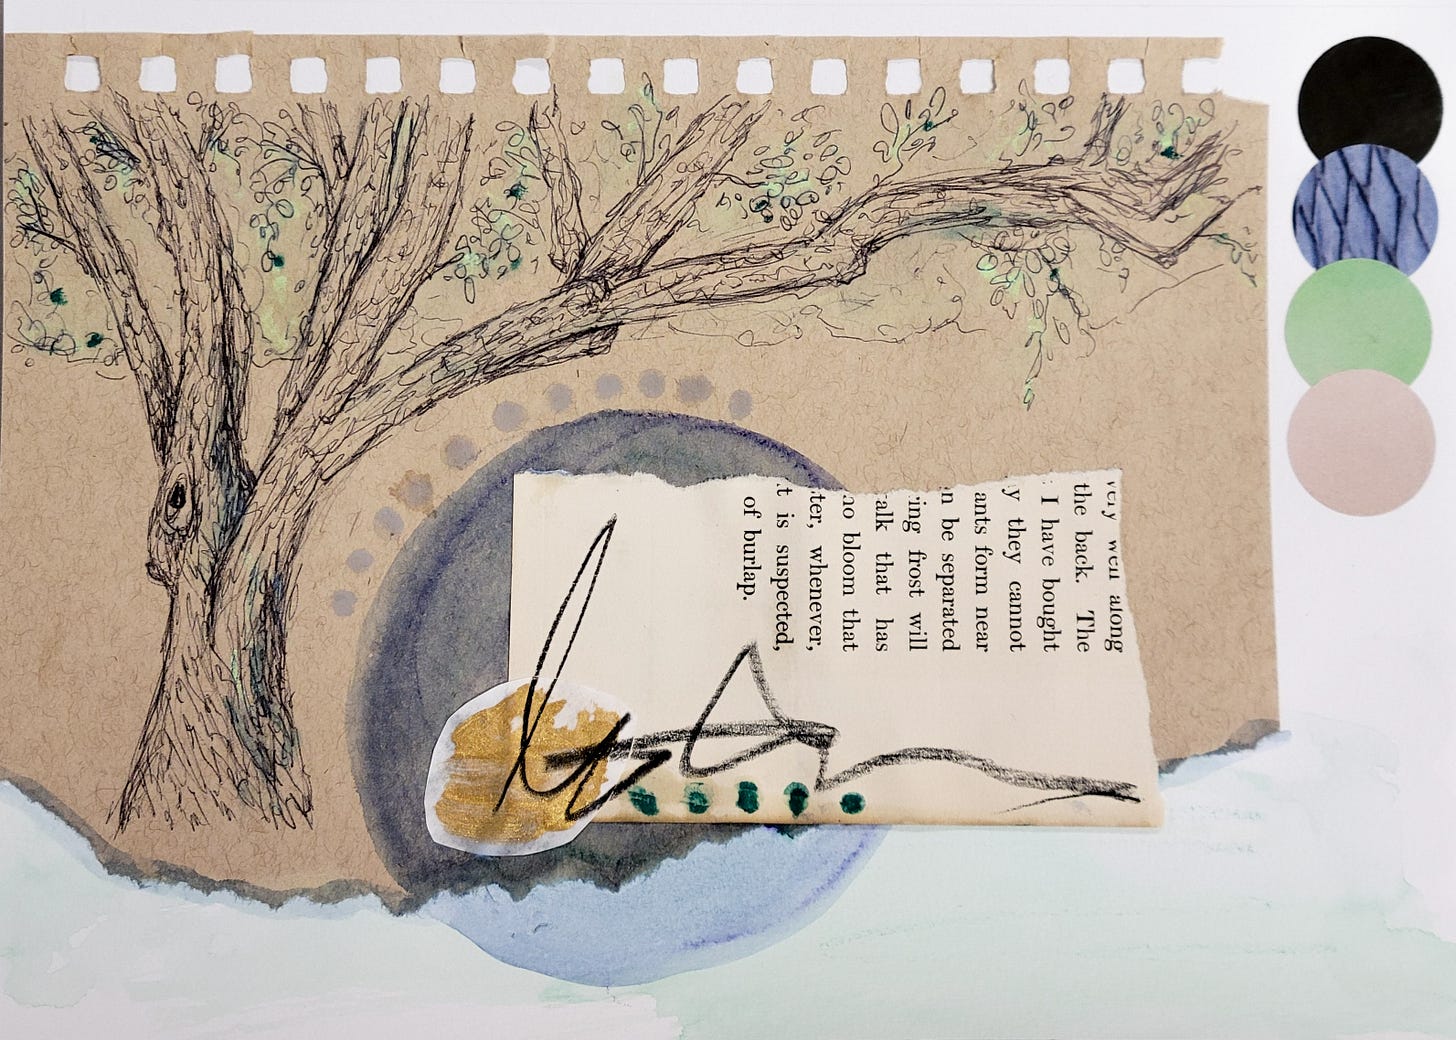 very well along
the back. The
I have bought
y they cannot
ants form near
n be separated
ring frost will
alk that has
no bloom that
ter, whenever,
t is suspected,
of burlap.